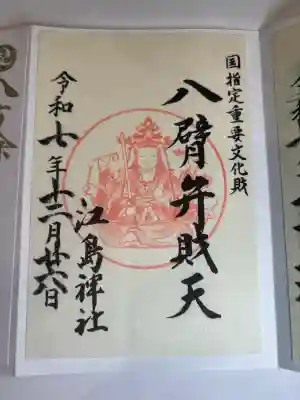 国指定重要文化財
八臂弁財天
江島神社
令和七年十二月廿六日